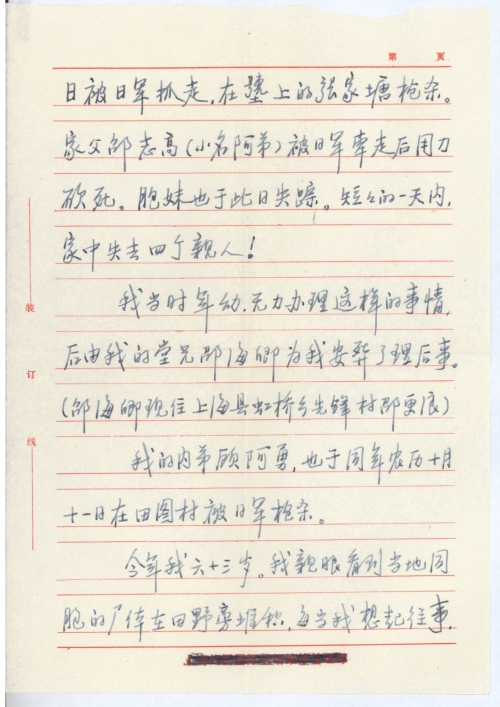 第 页
日被日军抓走,在墬上的张家塘枪杀。
家父邵志高(小名阿弟)被日军牵走后用刀
砍死。胞妹也于此日失踪。短々的一天内,
家中失去四个亲人!
我当时年幼,无力办理这样的事情,
后由我的堂兄邵海卿为我安葬了理后事。
(邵海卿现住上海县虹桥乡先锋村邵更浪)
我的内弟顾阿勇,也于同年农历十月
十一日在田图村被日军枪杀。
今年我六十三岁。我亲眼看到当地同
胞的尸体在田野旁堆积,每当我想起往事,
装
订
线